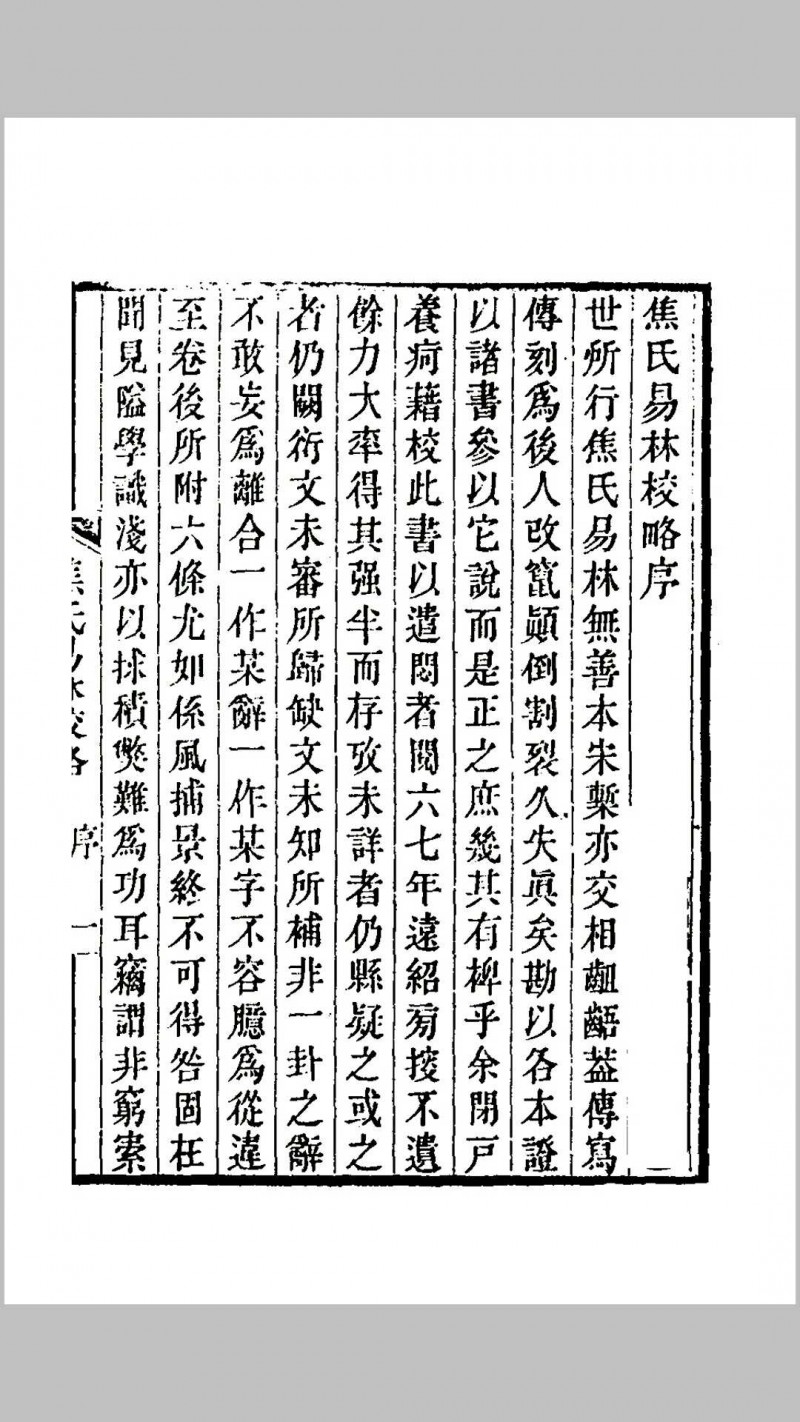 焦氏易林校略序
世所行焦氏易林無善本朱槧亦交相齟齬葢傳寫
傳刻爲後人改竄顚倒割裂久失眞矣勘以各本證
以諸書參以它說而是正之庶幾其有裨乎余閉戸
養疴藉校此書以遣悶者閱六七年遠紹旁搜不遺
餘力大率得其强半而存攷未詳者仍縣疑之或之
者仍闕衍文未審所歸缺文未知所補非一卦之辭
不敢妄爲離合一作某辭一作某字不容臆爲從違
至卷後所附六條尤如係風捕景終不可得咎固在
聞見隘學識淺亦以捄積獘難爲功耳竊謂非窮索
焦氏易林校略 序 一